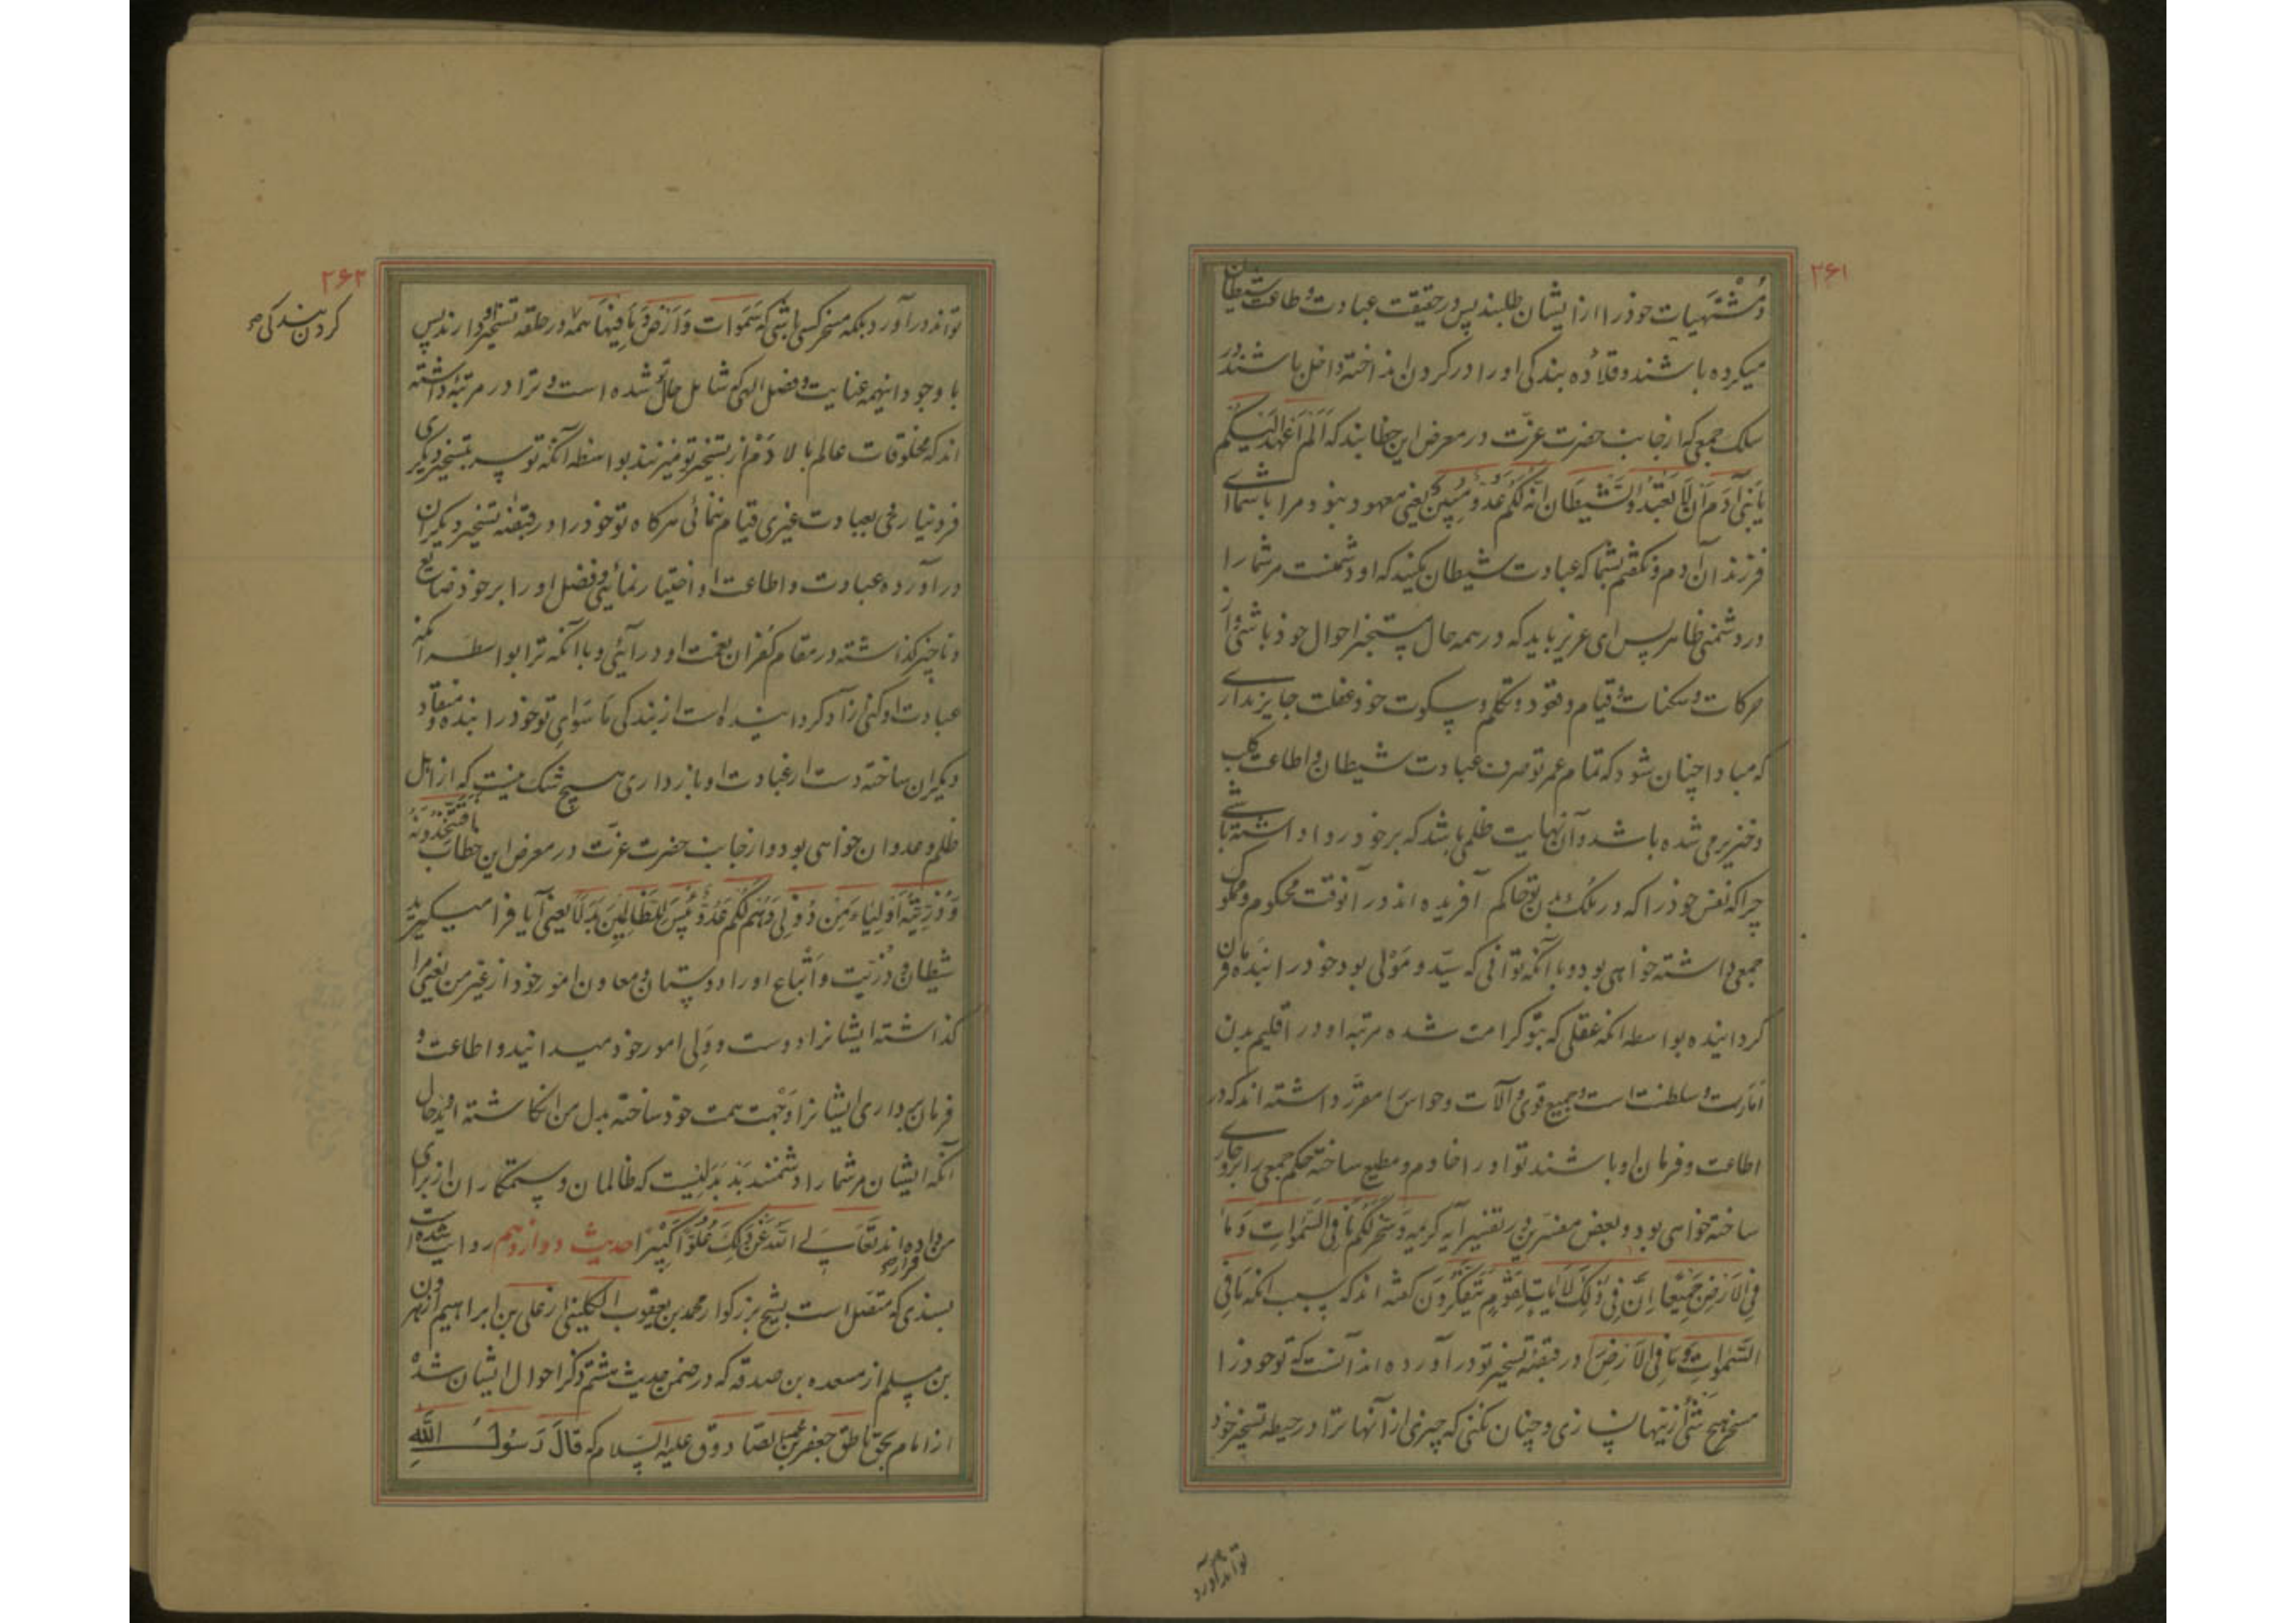 ۲۶۱
و مُشْتَهیات خوذرا ازایشان طلبند پس در حقیقت عبادت و طاعت شیطان
میکرده باشند و قلاده بندکی اورا در کردن انداخته داخل باشند در
سلک جمعی که از جانب حضرت عزّت در معرض این خطابند که اَلَمْ اَعْهَدْ اِلَیْکُم
یا بَنی آدَمَ اَن لا تَعْبُدُوا الشَّیْطَانَ اِنَّهُ لَکُمْ عَدُوٌّ مُبِینٌ یعنی معهود نبود مرا باشما ای
فرزندان آدم و نکفتم بشما که عبادت شیطان نکنید که او دشمنست مر شما را
در دشمنی ظاهر پس ای عزیز باید که در همه حال مستخبر احوال خوذ باشی و از
حرکات و سکنات و قیام و قعود و تکلم و سکوت خود غفلت جایز نداری
که مبادا چنان شود که تمام عمر تو صرف عبادت شیطان و اطاعت کلب
و خنزیر می شده باشد و آن نهایت ظلمی باشد که بر خود روا داشته باشی
چرا که نفس خوذرا که در ملک بدن تو حاکم آفریده اند در آنوقت محکوم و مملوک
جمعی داشته خواهی بود و با آنکه توانی که سیّد و مَوْلی بود خودرا بنده و فرمان
کردانیده بواسطه انکه عقلی که بتو کرامت شده مرتبه او در اقلیم بدن
اَمارت و سلطنت است و جمیع قوی و آلات و حواس را مقرّر داشته اند که در
اطاعت و فرمان او باشند تو اورا خادم و مطیع ساخته حکم جمعی را برو جاری
ساخته خواهی بود و بعض مفسرین در تفسیر آیه کریمه وَسَخَّرَ لَکُمْ مَا فِی السَّمٰوَاتِ وَ مَا
فِی الْاَرْضِ جَمِیْعًا اِنَّ فِی ذٰلِکَ لَاٰیَاتٍ لِقَوْمٍ یَتَفَکَّرُوْنَ کفته اند که سبب انکه مَا فِی
السَّمٰوَاتِ وَ مَا فِی الْاَرْضِ را در قبضه تسخیر تو درآورده اند آنست که تو خودرا
مسخر هیچ شَیْ از اینها نسازی و چنان نکنی که چیزی از آنها ترا در حیطه تسخیر خود
تواند درآورد
۲۶۲
تواند درآورد بلکه مسخر کسی باشی که سَمَوات وَ اَرْض وَ مَا فِیْهَا همه در حلقه تسخیر او دارند پس
با وجود اینهمه عنایت و فضل الهی که شامل حال تو شده است و ترا در مرتبه داشته
اند که مخلوقات عالم بالا دَمْ از تسخیر تو میزنند بواسطه آنکه تو سر بتسخیر دیکری
فرو نیارفی بعبادت غیری قیام ننمائی هرکاه تو خوذرا در قبضه تسخیر دیکران
درآورده عبادت و اطاعت او اختیار نمائی و فضل اورا بر خوذ ضایع
و ناچیز کذاشته در مقام کفران نعمت او درآئی و با آنکه ترا بواسطه آنکه
عبادت او کنی آزاد کردانیده است از بندکی مَا سَوای تو خوذرا بنده و منقاد
دیکران ساخته دست از عبادت او بازداری هیچ شک نیست که از اهل
ظلم و عدوان خواهی بود و از جانب حضرت عزّت در معرض این خطاب اَفَتَتَّخِذُوْنَهُ
وَ ذُرِّیَّتَهُ اَوْلِیَاءَ مِنْ دُوْنِی وَ هُمْ لَکُمْ عَدُوٌّ بِئْسَ لِلظَّالِمِیْنَ بَدَلًا یعنی آیا فرا میکیرید
شیطان و ذُرّیت و اَتْباع اورا دوستان و معاون امور خوذ از غیر من یعنی مرا
کذاشته ایشانرا دوست و وَلی امور خوذ میدانید و اطاعت و
فرمان برداری ایشانرا وجهت همت خود ساخته بدل من انکاشته اید و حال
آنکه ایشان مر شمارا دشمنند بَد بَدَلیست که ظالمان و ستمکاران از برای
من قرار داده اند تَعَالَی اللّٰهُ عَنْ ذٰلِکَ عُلُوًّا کَبِیْرًا حدیث دوازدهم روایت شده است
بسندی که متصل است بشیخ بزرکوار محمد بن یعقوب الکلینی از علی بن ابراهیم از هارون
بن مسلم از مسعده بن صدقه که در ضمن حدیث هشتم ذکر احوال ایشان شد
از امام بحق ناطق جعفر بن محمد الصّادق علیه السّلام که قَالَ رَسُولُ اللّٰهِ
کردن بندکی